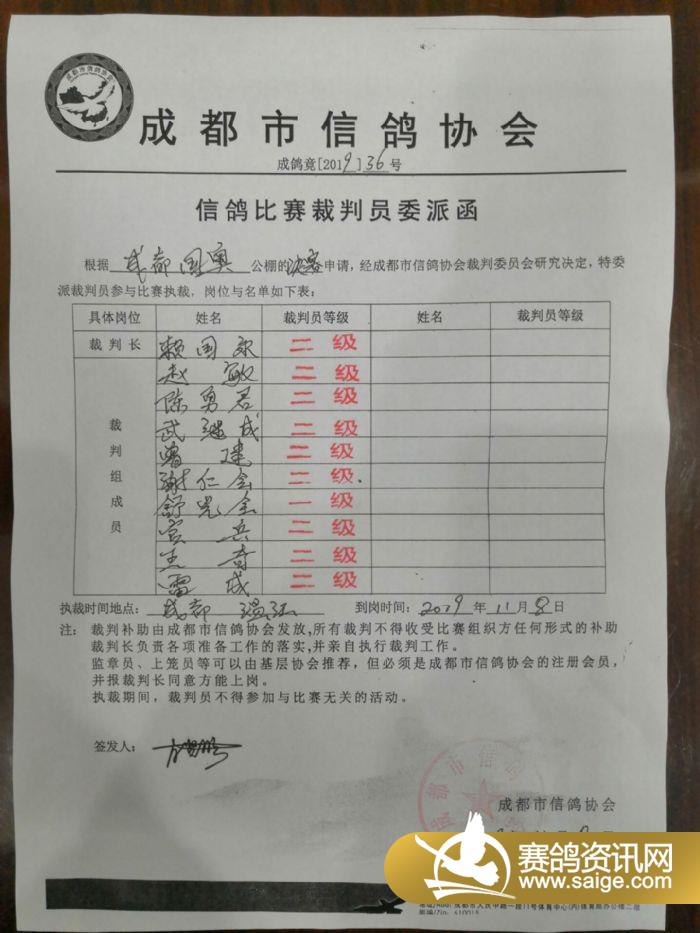 成都市信鸽协会
成都市信鸽协会
成鸽竞[2019]36号
信鸽比赛裁判员委派函
根据 成都国奥 公棚的决赛申请，经成都市信鸽协会裁判委员会研究决定，特委
派裁判员参与比赛执裁，岗位与名单如下表：
具体岗位 姓名 裁判员等级 姓名 裁判员等级
裁判长 赖国 二级
赵敏 二级
陈勇君 二级
武继成 二级
曾建 二级
谢仁会 二级
舒光全 一级
宾兵 二级
王奇 二级
雷成 二级
裁判组成员
执裁时间地点： 成都 温江 到岗时间：2019年11月8日
注： 裁判补助由成都市信鸽协会发放,所有裁判不得收受比赛组织方任何形式的补助
裁判长负责各项准备工作的落实,并亲自执行裁判工作。
监章员、上笼员等可以由基层协会推荐，但必须是成都市信鸽协会的注册会员，
并报裁判长同意方能上岗。
执裁期间，裁判员不得参加与比赛无关的活动。
签发人：
成都市信鸽
成都市信鸽协会
赛鸽资讯网
www.saige.com
地址/Add: 成都市人民中路一段11号体育中心(内)体育局办公楼二楼
邮编/Zip: 610015